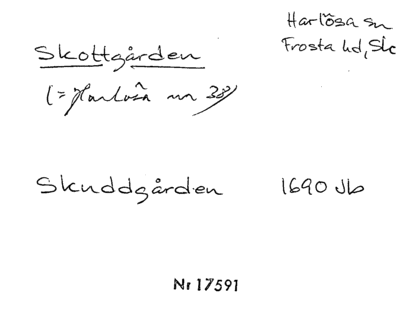 Harlösa sn
Frosta hd, Sk
Skottgården
(= Harlösa nr 38)
Skuddgården 1690 Jb
Nr 17591